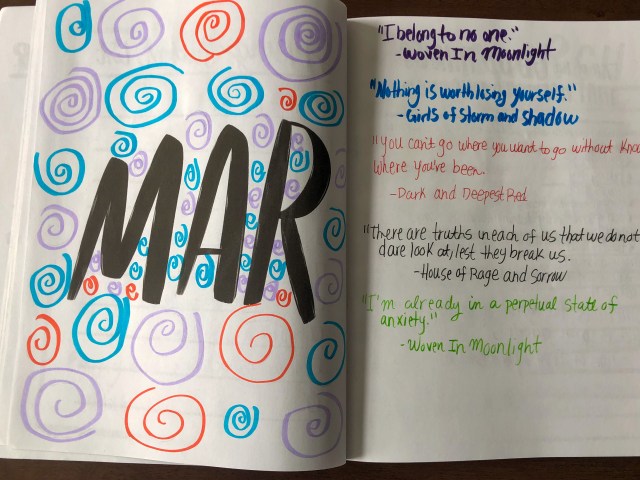 MAR
"I belong to no one."
- Woven In Moonlight
"Nothing is worth losing yourself."
- Girls of Storm and Shadow
"you can't go where you want to go without
where you've been.
- Dark and Deepest Red
"There are truths in each of us that we do not
dare look at, lest they break us.
- House of Rage and Sorrow
"I'm already in a perpetual state of
anxiety."
- Woven In Moonlight